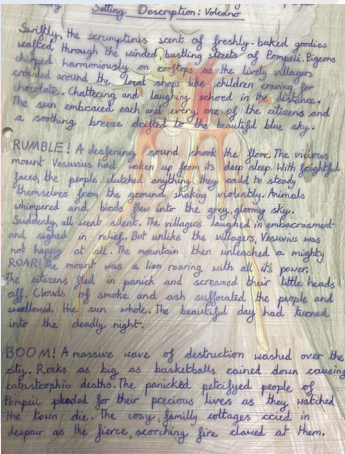 Setting Description: Volcano
Swiftly, the scrumptious scent of freshly-baked goodies
wafted through the winded bustling streets of Pompeii. Pigeons
chirped harmoniously on rooftops as the lively villagers
crowded around the local shops like children craving for
chocolate. Chattering and laughing echoed in the distance.
The sun embraced each and every one of the citizens and
a soothing breeze drifted to the beautiful blue sky.
RUMBLE! A deafening sound shook the floor. The vicious
mount Vesuvius had woken up from its deep sleep. With frightful
faces, the people clutched anything they could to steady
themselves from the ground shaking violently. Animals
whimpered and birds flew into the grey, gloomy sky.
Suddenly, all went silent. The villagers laughed in embarrassment
and sighed in relief. But unlike the villagers, Vesuvius was
not happy at all. The mountain then unleashed a mighty
ROAR! The mount was a lion roaring with all its power.
The citizens fled in panick and screamed their little heads
off. Clouds of smoke and ash suffocated the people and
swallowed the sun whole. The beautiful day had turned
into the deadly night.
BOOM! A massive wave of destruction washed over the
city. Rocks as big as basketballs rained down causing
catastrophic deaths. The panicked petrifyed people of
Pompeii pleaded for their precious lives as they watched
the town die. The cosy, familly cottages cried in
despair as the fierce, scorching fire clawed at them.